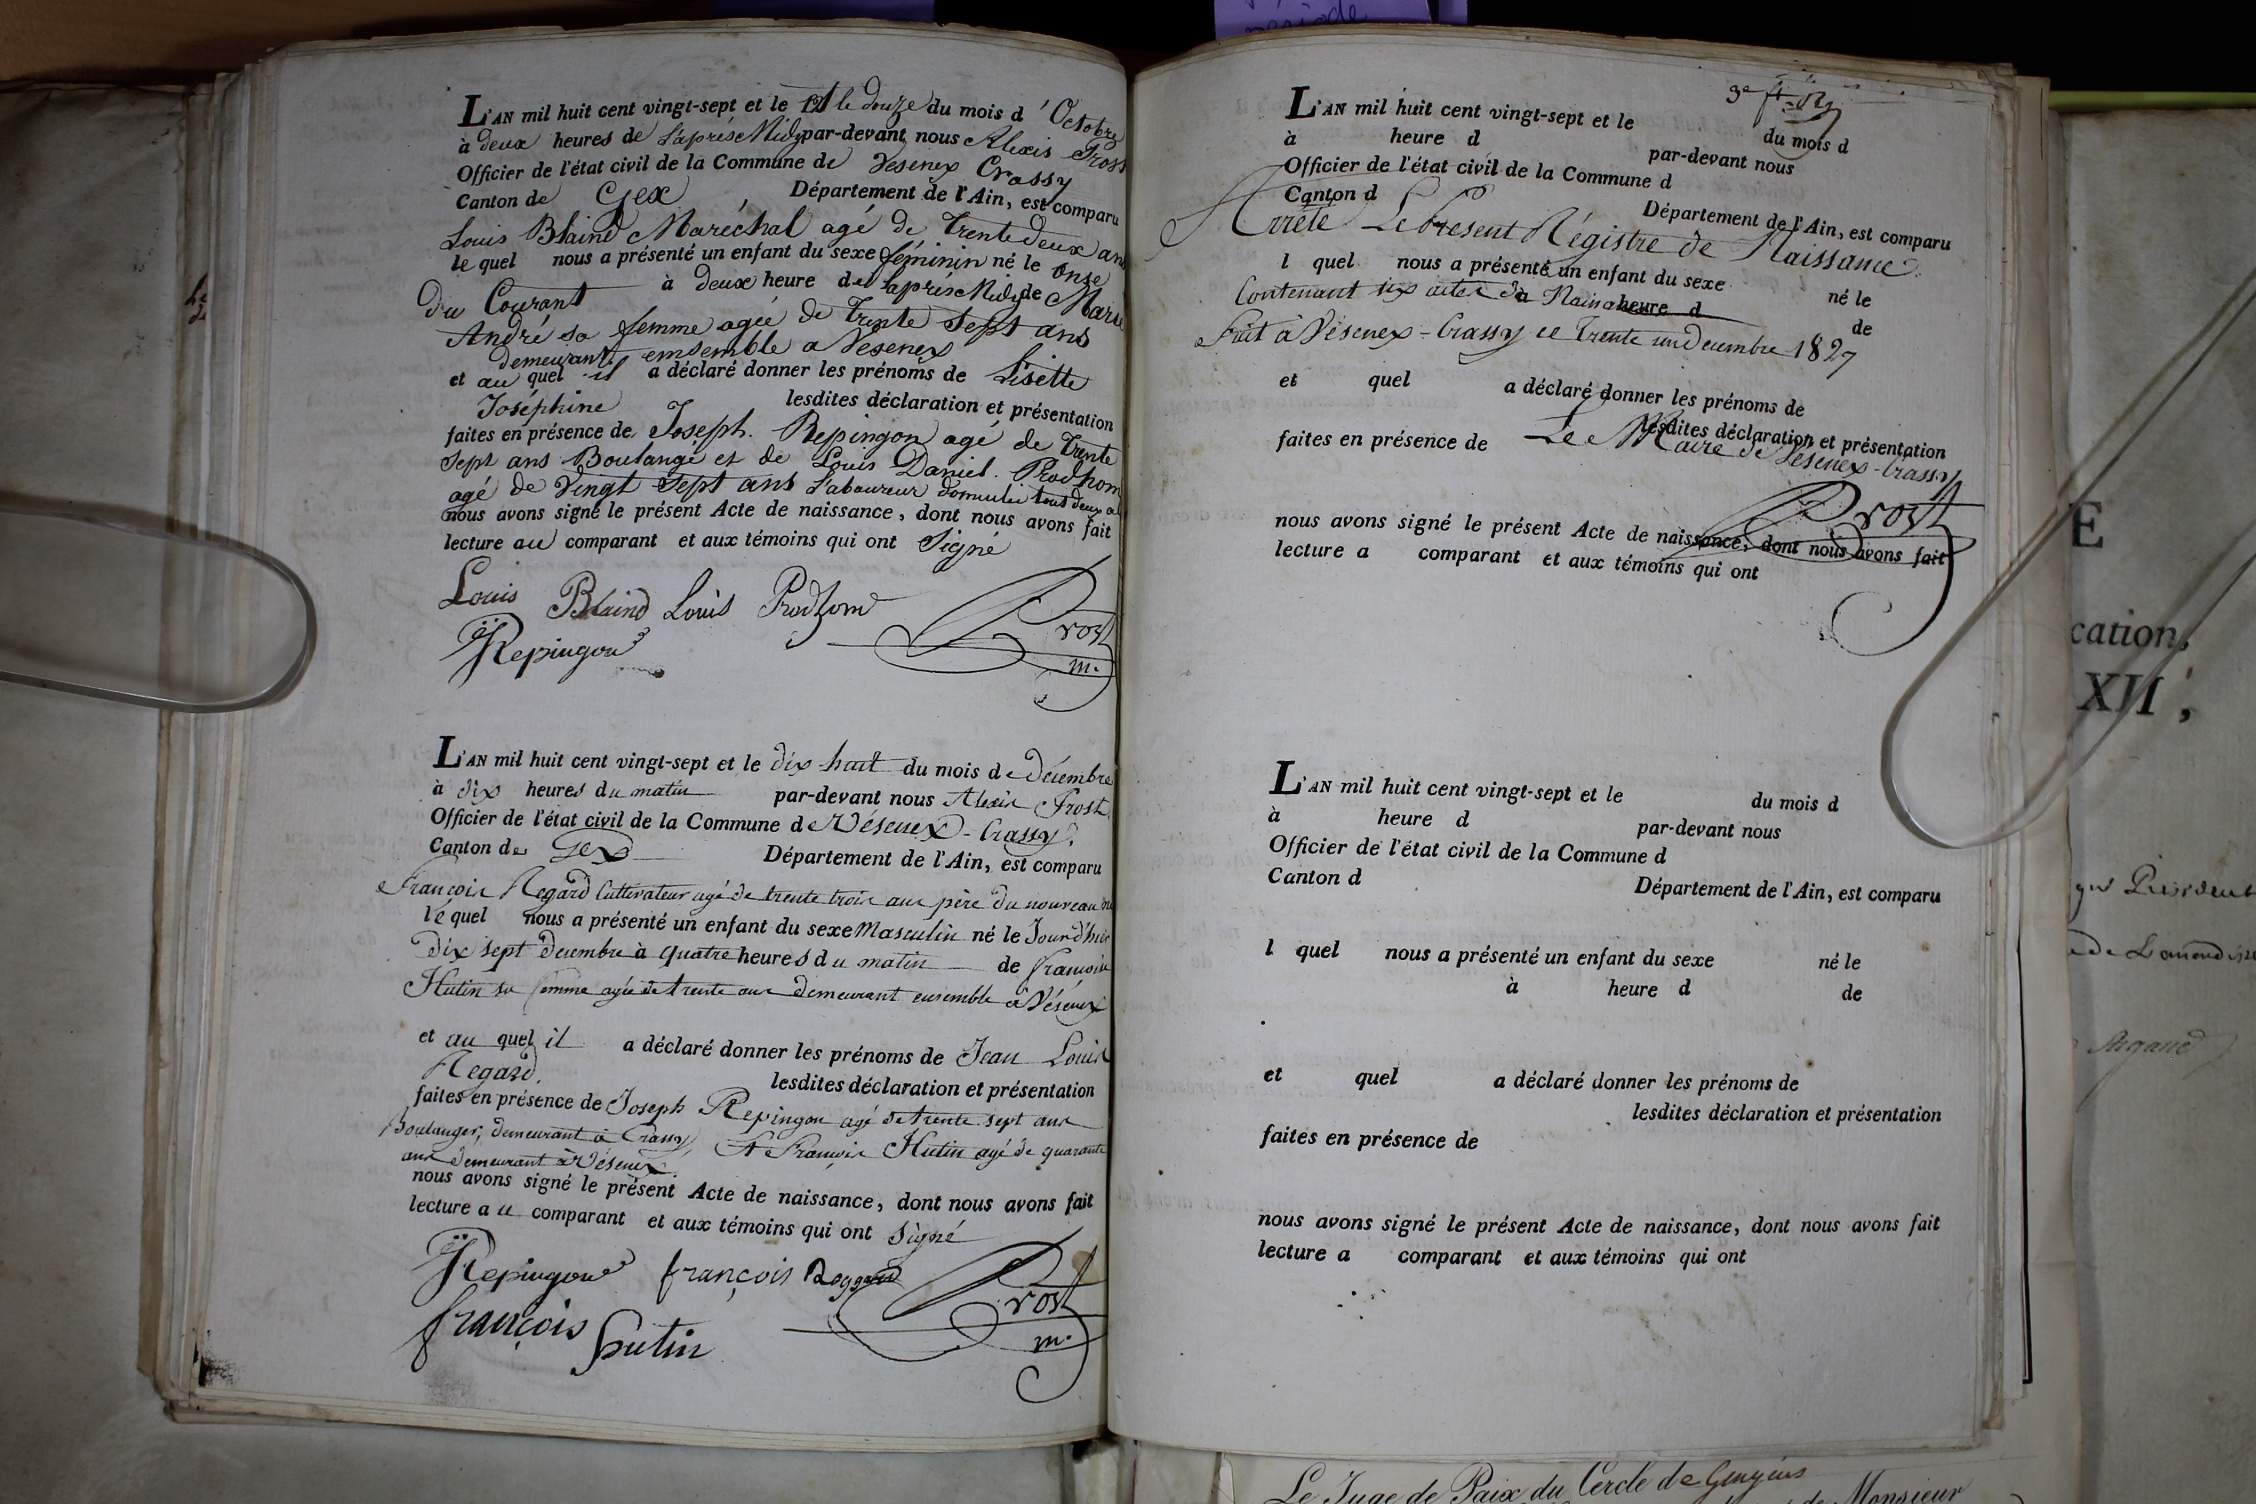 L'AN mil huit cent vingt-sept et le 12 le douze du mois d'Octobre
à deux heures de l'aprés Midy par-devant nous Alexis Prost
Officier de l'état civil de la Commune de Vesenex Crassy
Canton de Gex Département de l'Ain, est comparu
Louis Blaind Maréchal agé de trente deux ans
le quel nous a présenté un enfant du sexe féminin né le onse
du Courant à deux heure de l'aprés Midy de Marie
André sa femme agée de trente sept ans
demeurant emsemble a Vesenex
et au quel il a déclaré donner les prénoms de Lisette
Joséphine lesdites déclaration et présentation
faites en présence de Joseph Repingon agé de trente
sept ans Boulangé et de Louis Daniel Prodhom
agé de vingt sept ans Laboureur domicilié tous deux a
nous avons signé le présent Acte de naissance, dont nous avons fait
lecture au comparant et aux témoins qui ont Signé
Louis Blaind Louis Prodhom
Repingon Prost
m.
L'AN mil huit cent vingt-sept et le dix huit du mois de Décembre
à dix heures du matin par-devant nous Alexis Prost
Officier de l'état civil de la Commune de Vésenex-Crassy
Canton de Gex Département de l'Ain, est comparu
François Regard Cultivateur agé de trente trois ans père du nouveau né
lé quel nous a présenté un enfant du sexe Masculin né le Jour d'hier
dix sept décembre à quatre heures du matin de françoise
Hutin sa femme agée de trente ans demeurant ensemble à Vésenex
et au quel il a déclaré donner les prénoms de Jean Louis
Regard. lesdites déclaration et présentation
faites en présence de Joseph Repingon agé de trente sept ans
Boulanger, demeurant à Crassy, & François Hutin agé de quarante
ans demeurant à Vésenex.
nous avons signé le présent Acte de naissance, dont nous avons fait
lecture au comparant et aux témoins qui ont Signé
Repingon françois Reggard
françois hutin Prost
m.
3e
L'AN mil huit cent vingt-sept et le du mois d
à heure d par-devant nous
Officier de l'état civil de la Commune d
Canton d Département de l'Ain, est comparu
Arrêté Le Présent Régistre de Naissance
l quel nous a présenté un enfant du sexe né le
Contenant six actes de à heure d de
Fait à Vésenex-Crassy ce trente un Décembre 1827
et quel a déclaré donner les prénoms de
lesdites déclaration et présentation
faites en présence de Le Maire de Vésenex-Crassy
Prost
nous avons signé le présent Acte de naissance, dont nous avons fait
lecture a comparant et aux témoins qui ont
L'AN mil huit cent vingt-sept et le du mois d
à heure d par-devant nous
Officier de l'état civil de la Commune d
Canton d Département de l'Ain, est comparu
l quel nous a présenté un enfant du sexe né le
à heure d de
et quel a déclaré donner les prénoms de
lesdites déclaration et présentation
faites en présence de
nous avons signé le présent Acte de naissance, dont nous avons fait
lecture a comparant et aux témoins qui ont
E
cation,
XII,
Président
Argand
Le Juge de Paix du Cercle de
de Monsieur